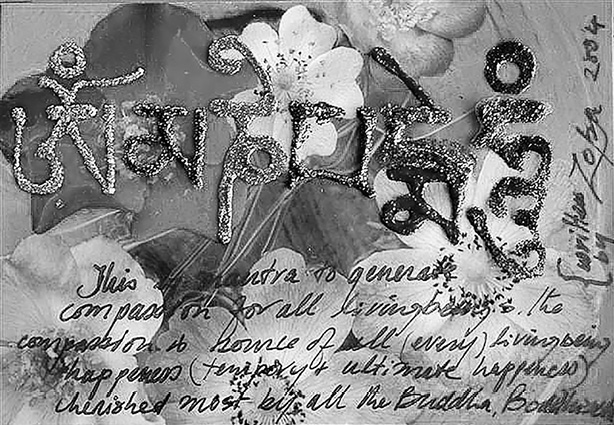 ཨོཾམཎིཔདྨེཧཱུཾ
This is mantra to generate
compassion for all livingbeings. The
compassion is source of all (every) livingbeing
happeness (tempory + ultimate happeness)
cherished most by all the Buddha,
{written by Zopa 2004